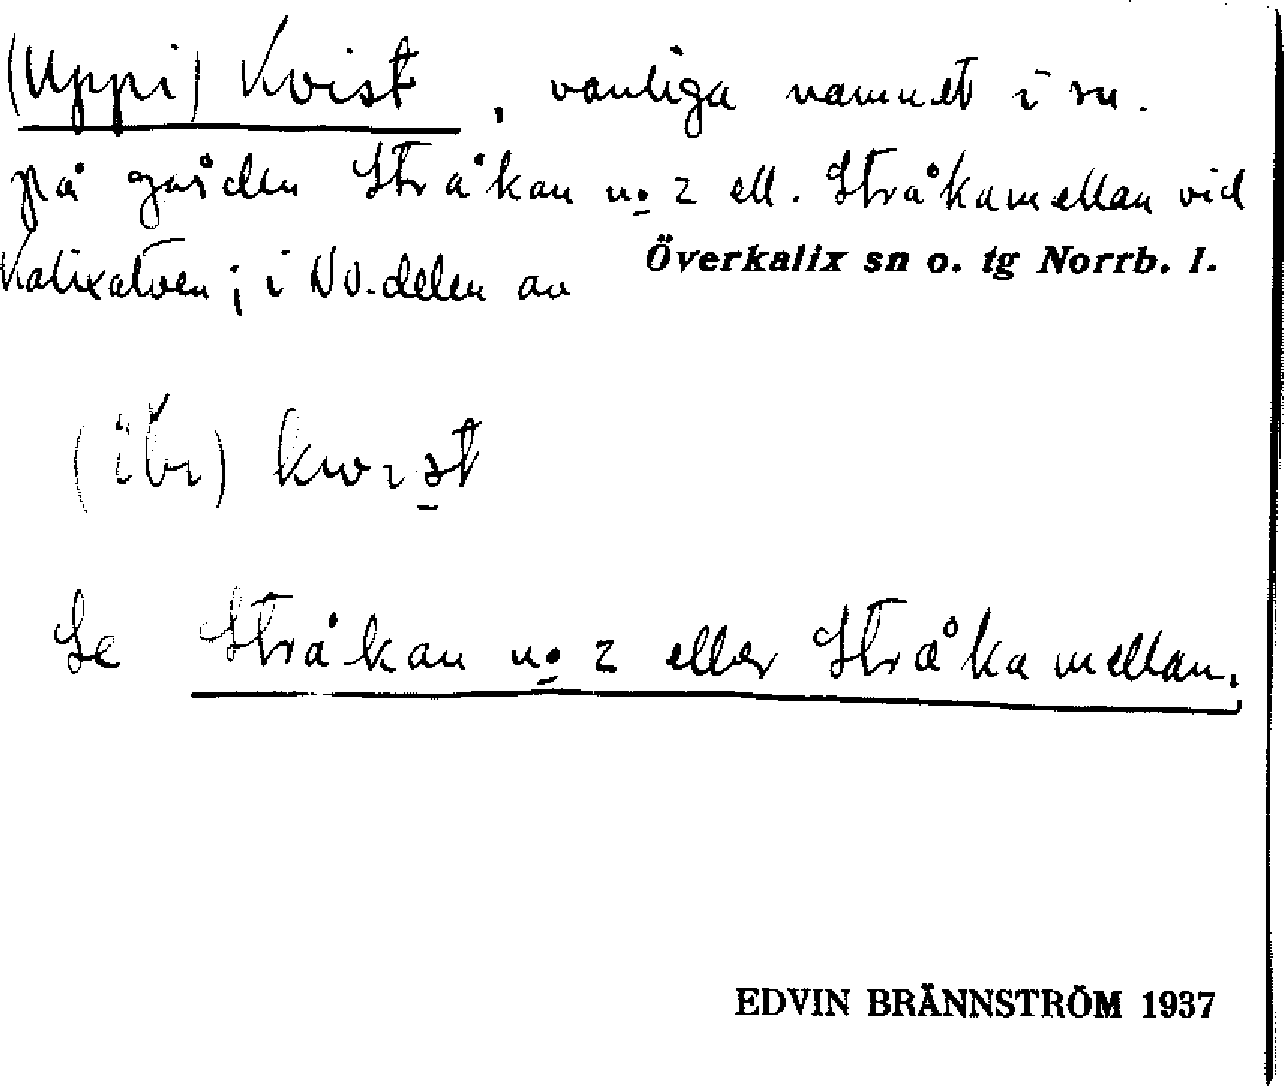 (Uppi) Kvist, vanliga namnet i sn.
på gården Stråkan no 2 ell. Stråkamellan vid
Kalixälven; i NO.delen av
Överkalix sn o. tg Norrb. l.
kwıst
Se Stråkan no 2 eller Stråkamellan.
EDVIN BRÄNNSTRÖM 1937